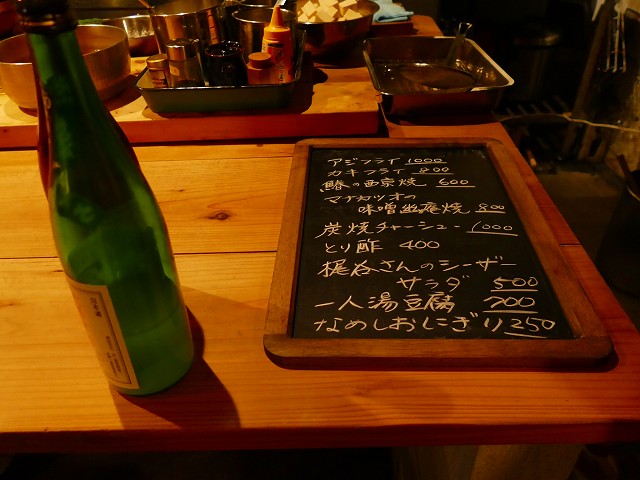 アジフライ 1000
カキフライ 800
鰆の西京焼 600
マナガツオの
味噌幽庵焼 800
炭焼チャーシュー 1000
とり酢 400
梶谷さんのシーザー
サラダ 500
一人湯豆腐 700
なめしおにぎり 250